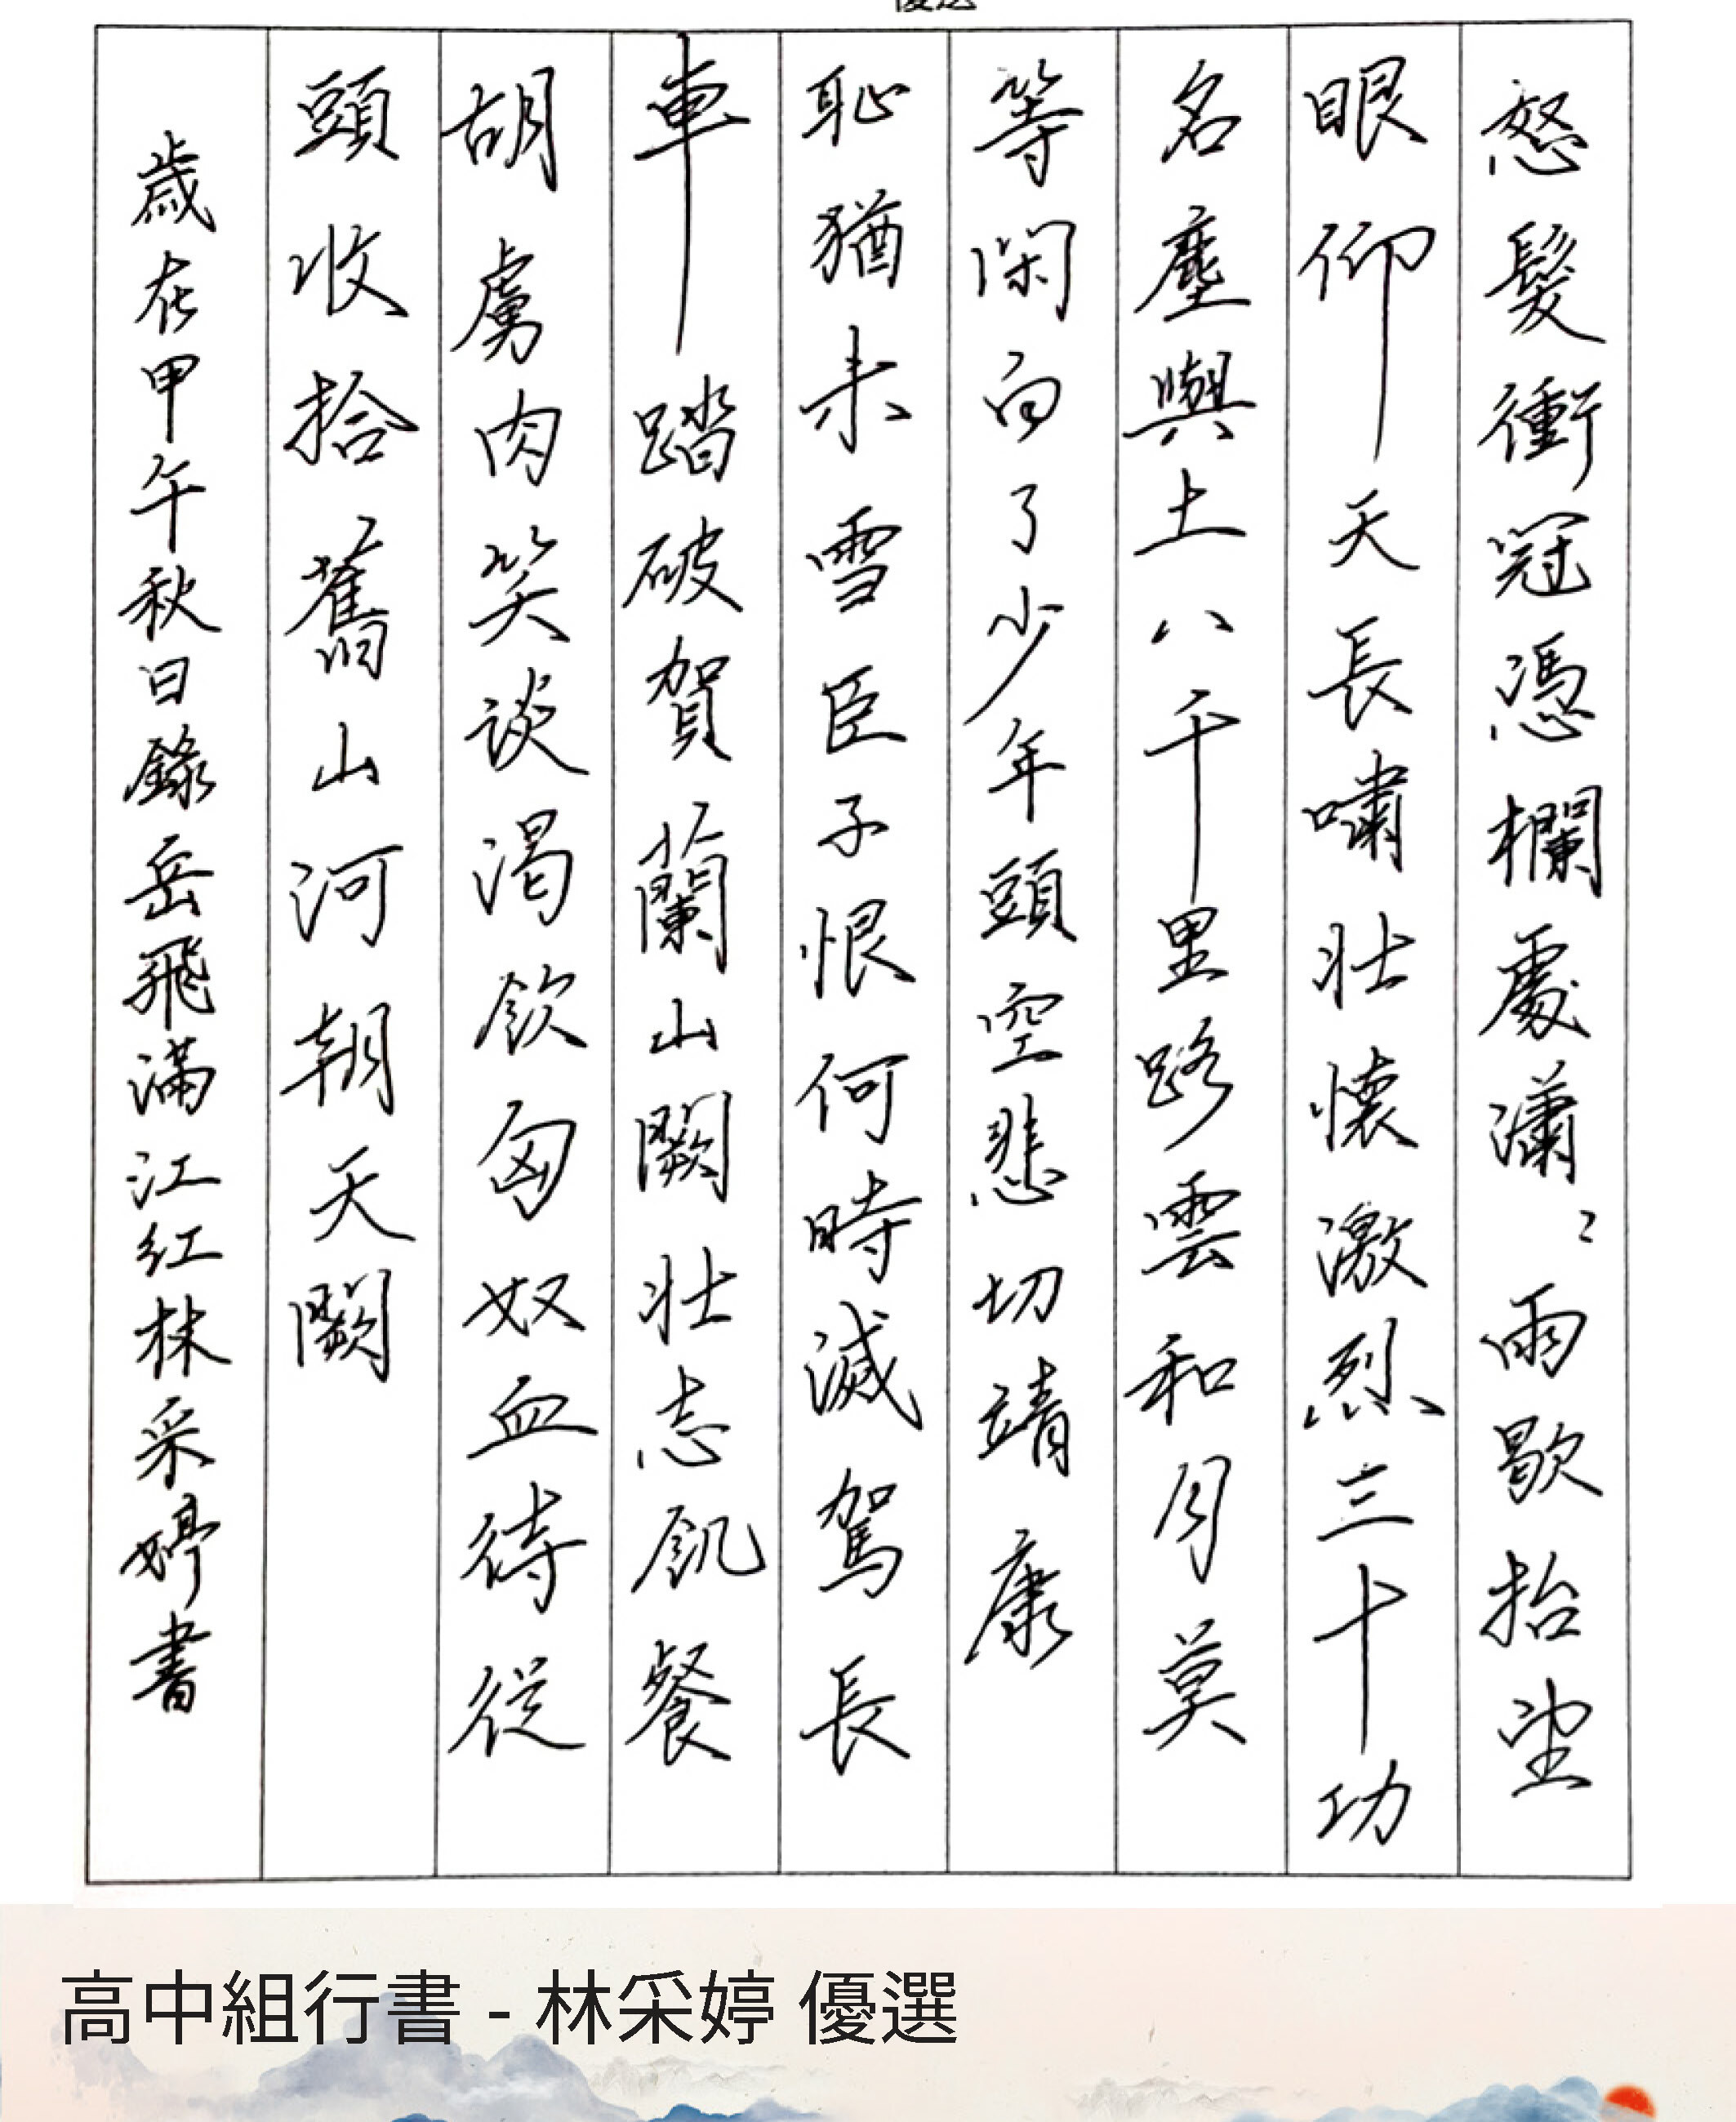 怒髮衝冠憑欄處瀟〻雨歇抬望
眼仰天長嘯壯懷激烈三十功
名塵與土八千里路雲和月莫
等閑白了少年頭空悲切靖康
恥猶未雪臣子恨何時滅駕長
車踏破賀蘭山闕壯志飢餐
胡虜肉笑談渴飲匈奴血待從
頭收拾舊山河朝天闕
歲在甲午秋日錄岳飛滿江紅林采婷書
高中組行書 - 林采婷 優選